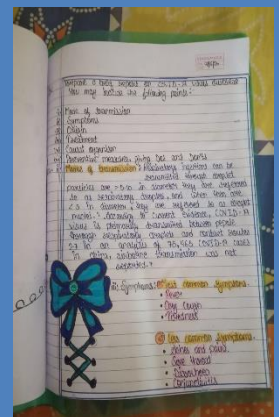 Prepare a brief report on COVID-19 virus outbreak
You may include the following points:
Mode of transmission
Symptoms
Origin
Treatment
Guest expansion
Preventive measures, giving Do's and Don'ts
Mode of transmission: Respiratory injections can be
transmitted through droplet
particles are
to as respiratory droplets, and when
are referred to as droplet
nuclei. According to current evidence, COVID-19
virus is primarily transmitted between people
through respiratory droplets and contact routes
In an analysis of 75,465 COVID-19 cases
in China, airborne transmission was not
reported.
Symptoms: Most common symptoms.
• Fever
• Dry cough
• Tiredness
Less common symptoms.
• Aches and pains.
• Sore throat
• Diarrhoea
• Conjunctivitis